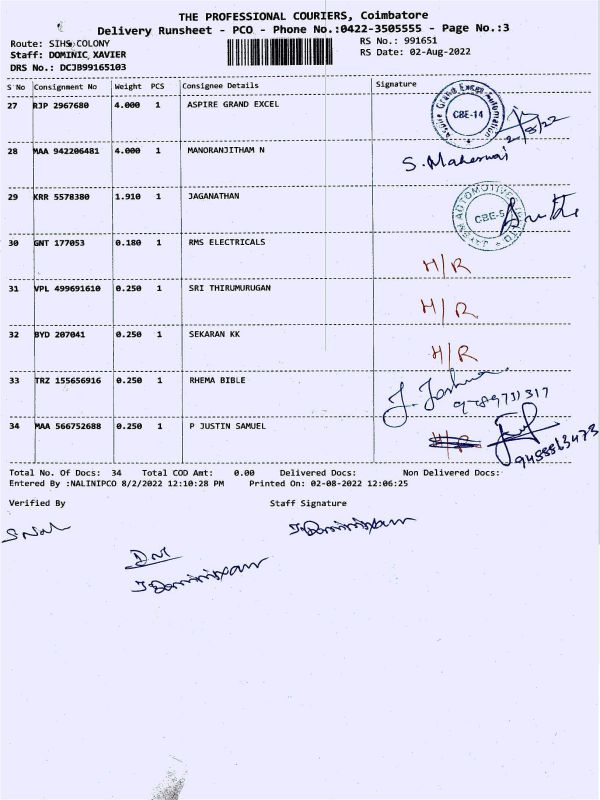 THE PROFESSIONAL COURIERS, Coimbatore
Delivery Runsheet - PCO - Phone No.:0422-3505555 - Page No.:3
Route: SIHS COLONY
RS No.: 991651
Staff: DOMINIC XAVIER
RS Date: 02-Aug-2022
DRS No.: DCJB99165103
S No Consignment No Weight PCS Consignee Details Signature
27 RJP 2967680 4.000 1 ASPIRE GRAND EXCEL
Aspire Grand Excel Automation
CBE-14
2/8/22
28 MAA 942206481 4.000 1 MANORANJITHAM N
S. Maheswari
29 KRR 5578380 1.910 1 JAGANATHAN
AUTOMOTIVE
CBE-5
30 GNT 177053 0.180 1 RMS ELECTRICALS
H/R
31 VPL 499691610 0.250 1 SRI THIRUMURUGAN
H/R
32 BYD 207041 0.250 1 SEKARAN KK
H/R
33 TRZ 155656916 0.250 1 RHEMA BIBLE
J. Joshua
34 MAA 566752688 0.250 1 P JUSTIN SAMUEL
H/R
Total No. Of Docs: 34 Total COD Amt: 0.00 Delivered Docs: Non Delivered Docs:
Entered By :NALINIPCO 8/2/2022 12:10:28 PM Printed On: 02-08-2022 12:06:25
Verified By Staff Signature